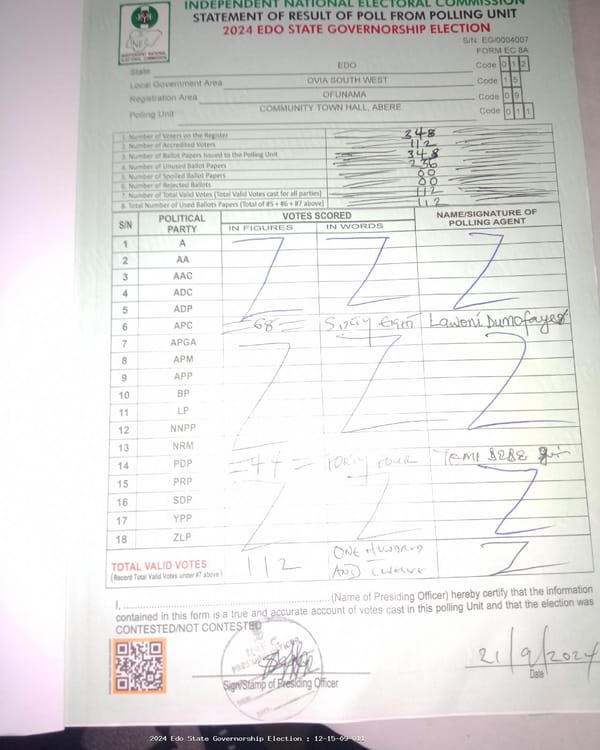 INDEPENDENT NATIONAL ELECTORAL COMMISSION
STATEMENT OF RESULT OF POLL FROM POLLING UNIT
2024 EDO STATE GOVERNORSHIP ELECTION
S/N EG/0004007
FORM EC 8A
State EDO Code 0 1 2
Local Government Area OVIA SOUTH WEST Code 1 5
Registration Area OFUNAMA Code 0 9
Polling Unit COMMUNITY TOWN HALL, ABERE Code 0 1 1
1. Number of Voters on the Register 348
2. Number of Accredited Voters 112
3. Number of Ballot Papers Issued to the Polling Unit 348
4. Number of Unused Ballot Papers 236
5. Number of Spoiled Ballot Papers 00
6. Number of Rejected Ballots 00
7. Number of Total Valid Votes (Total Valid Votes cast for all parties) 112
8. Total Number of Used Ballots Papers (Total of #5 + #6 + #7 above) 112
S/N POLITICAL PARTY VOTES SCORED NAME/SIGNATURE OF POLLING AGENT
IN FIGURES IN WORDS
1 A
2 AA
3 AAC
4 ADC
5 ADP
6 APC =68= Sixty Eight Laweni
7 APGA
8 APM
9 APP
10 BP
11 LP
12 NNPP
13 NRM
14 PDP =44= FORTY FOUR
15 PRP
16 SDP
17 YPP
18 ZLP
TOTAL VALID VOTES 112 ONE HUNDRED AND TWELVE
(Record Total Valid Votes under #7 above)
I, ........................................(Name of Presiding Officer) hereby certify that the information
contained in this form is a true and accurate account of votes cast in this polling Unit and that the election was
CONTESTED/NOT CONTESTED
21/9/2024
Sign/Stamp of Presiding Officer Date
2024 Edo State Governorship Election : 12-15-09-011